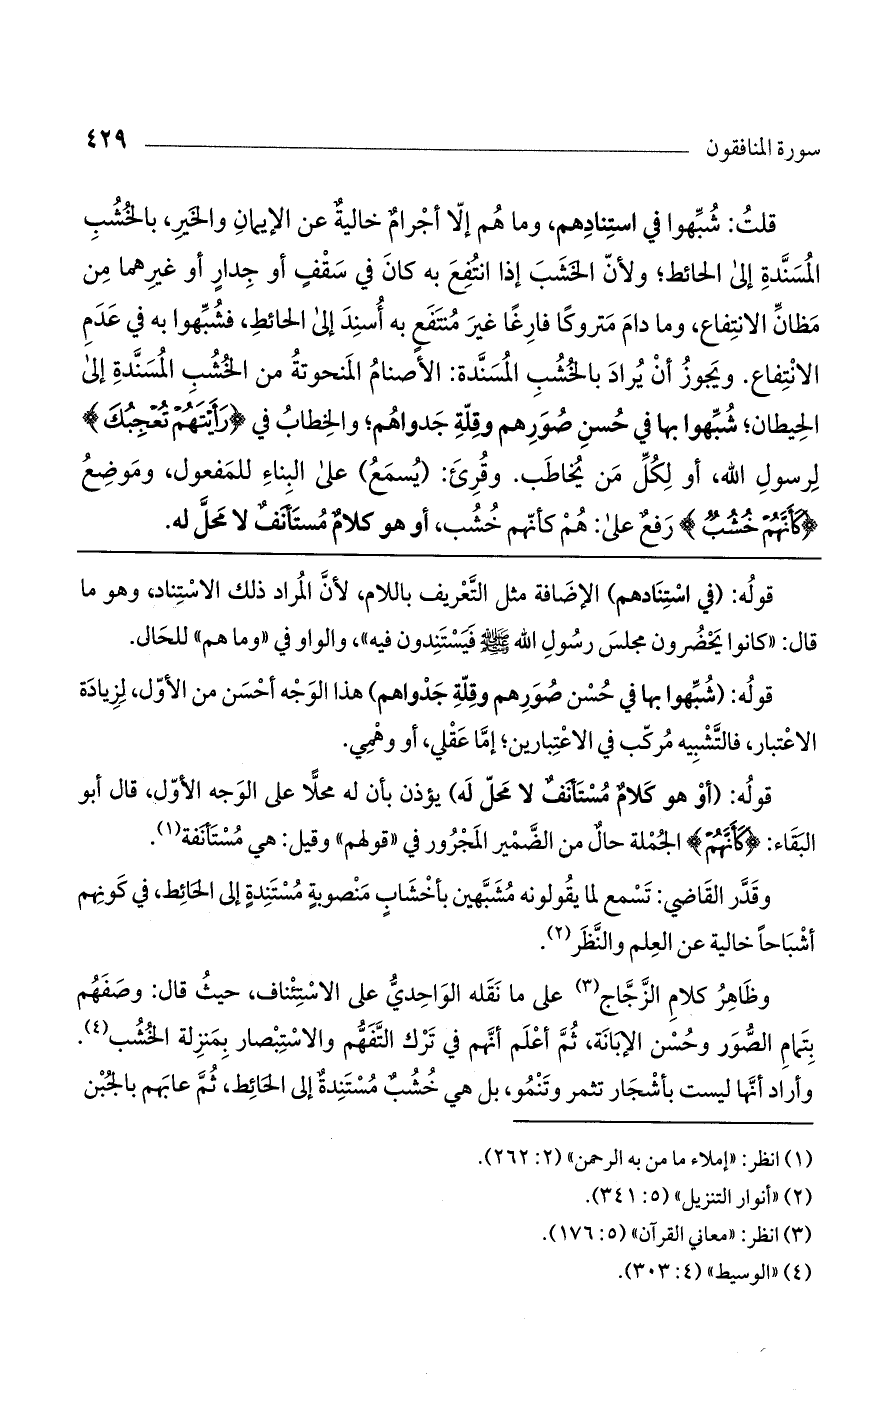 سورة المنافقون ٤٢٩
قلتُ: شُبِّهوا في استِنادِهم، وما هُم إلّا أجْرامٌ خاليةٌ عن الإيمانِ والخَيرِ، بالخُشُبِ
المُسَنَّدةِ إلىٰ الحائط؛ ولأنّ الخَشَبَ إذا انتُفِعَ به كانَ في سَقْفٍ أو جِدارٍ أو غيرِهما مِن
مَظانِّ الانتِفاع، وما دامَ مَتروكًا فارِغًا غيرَ مُنتَفَعٍ به أُسنِدَ إلىٰ الحائطِ، فشُبِّهوا به في عَدَمِ
الانْتِفاع. ويَجوزُ أنْ يُرادَ بالخُشُبِ المُسَنَّدة: الأصنامُ المَنحوتةُ من الخُشُبِ المُسَنَّدةِ إلىٰ
الحِيطان؛ شُبِّهوا بها في حُسنِ صُوَرِهم وقِلّةِ جَدواهُم؛ والخِطابُ في ﴿رَأَيْتَهُمْ تُعْجِبُكَ﴾
لِرسولِ الله، أو لِكُلِّ مَن يُخاطَب. وقُرِئَ: (يُسمَعُ) علىٰ البِناءِ للمَفعول، ومَوضِعُ
﴿كَأَنَّهُمْ خُشُبٌ﴾ رَفعٌ علىٰ: هُمْ كأنّهم خُشُب، أو هو كلامٌ مُستَأنَفٌ لا محَلَّ له.
قولُه: (في اسْتِنَادهم) الإضَافة مثل التَّعْريف باللام، لأنَّ المُراد ذلك الاسْتِناد، وهو ما
قال: «كانوا يَحْضُرون مجلسَ رسُولِ الله ﷺ فَيَسْتَنِدون فيه»، والواو في «وما هم» للحَال.
قولُه: (شُبِّهوا بها في حُسْن صُوَرِهم وقِلّةِ جَدْواهم) هذا الوَجْه أحْسَن من الأوّل، لِزيادَة
الاعْتبار، فالتَّشْبِيه مُركّب في الاعْتِبارين؛ إمَّا عَقْلي، أو وهْمِي.
قولُه: (أوْ هو كَلامٌ مُسْتَأنَفٌ لا محَلّ لَه) يؤذن بأن له محلًّا على الوَجه الأوّل، قال أبو
البَقَاء: ﴿كَأَنَّهُمْ﴾ الجُمْلة حالٌ من الضَّمِير المَجْرُور في «قولهم» وقيل: هي مُسْتَأنَفة(١).
وقَدَّر القَاضِي: تَسْمع لما يقُولونه مُشَبَّهين بأخْشابٍ مَنْصوبةٍ مُسْتَنِدةٍ إلى الحَائِط، في كَونِهم
أشْبَاحاً خالية عن العِلم والنَّظَر(٢).
وظَاهِرُ كلامِ الزَّجَّاج(٣) على ما نَقَله الوَاحِديُّ على الاسْتِئْناف، حيثُ قال: وصَفَهُم
بِتَمامِ الصُّوَر وحُسْن الإبَانَة، ثُمَّ أعْلَم أنَّهم في تَرْك التَّفَهُّم والاسْتِبْصار بِمَنزِلة الخُشُب(٤).
وأراد أنَّها ليست بأشْجَار تثمر وتَنْمُو، بل هي خُشُبٌ مُسْتَنِدةٌ إلى الحَائِط، ثُمَّ عابَهم بالجُبْن
(١) انظر: «إملاء ما من به الرحمن» (٢: ٢٦٢).
(٢) «أنوار التنزيل» (٥: ٣٤١).
(٣) انظر: «معاني القرآن» (٥: ١٧٦).
(٤) «الوسيط» (٤: ٣٠٣).